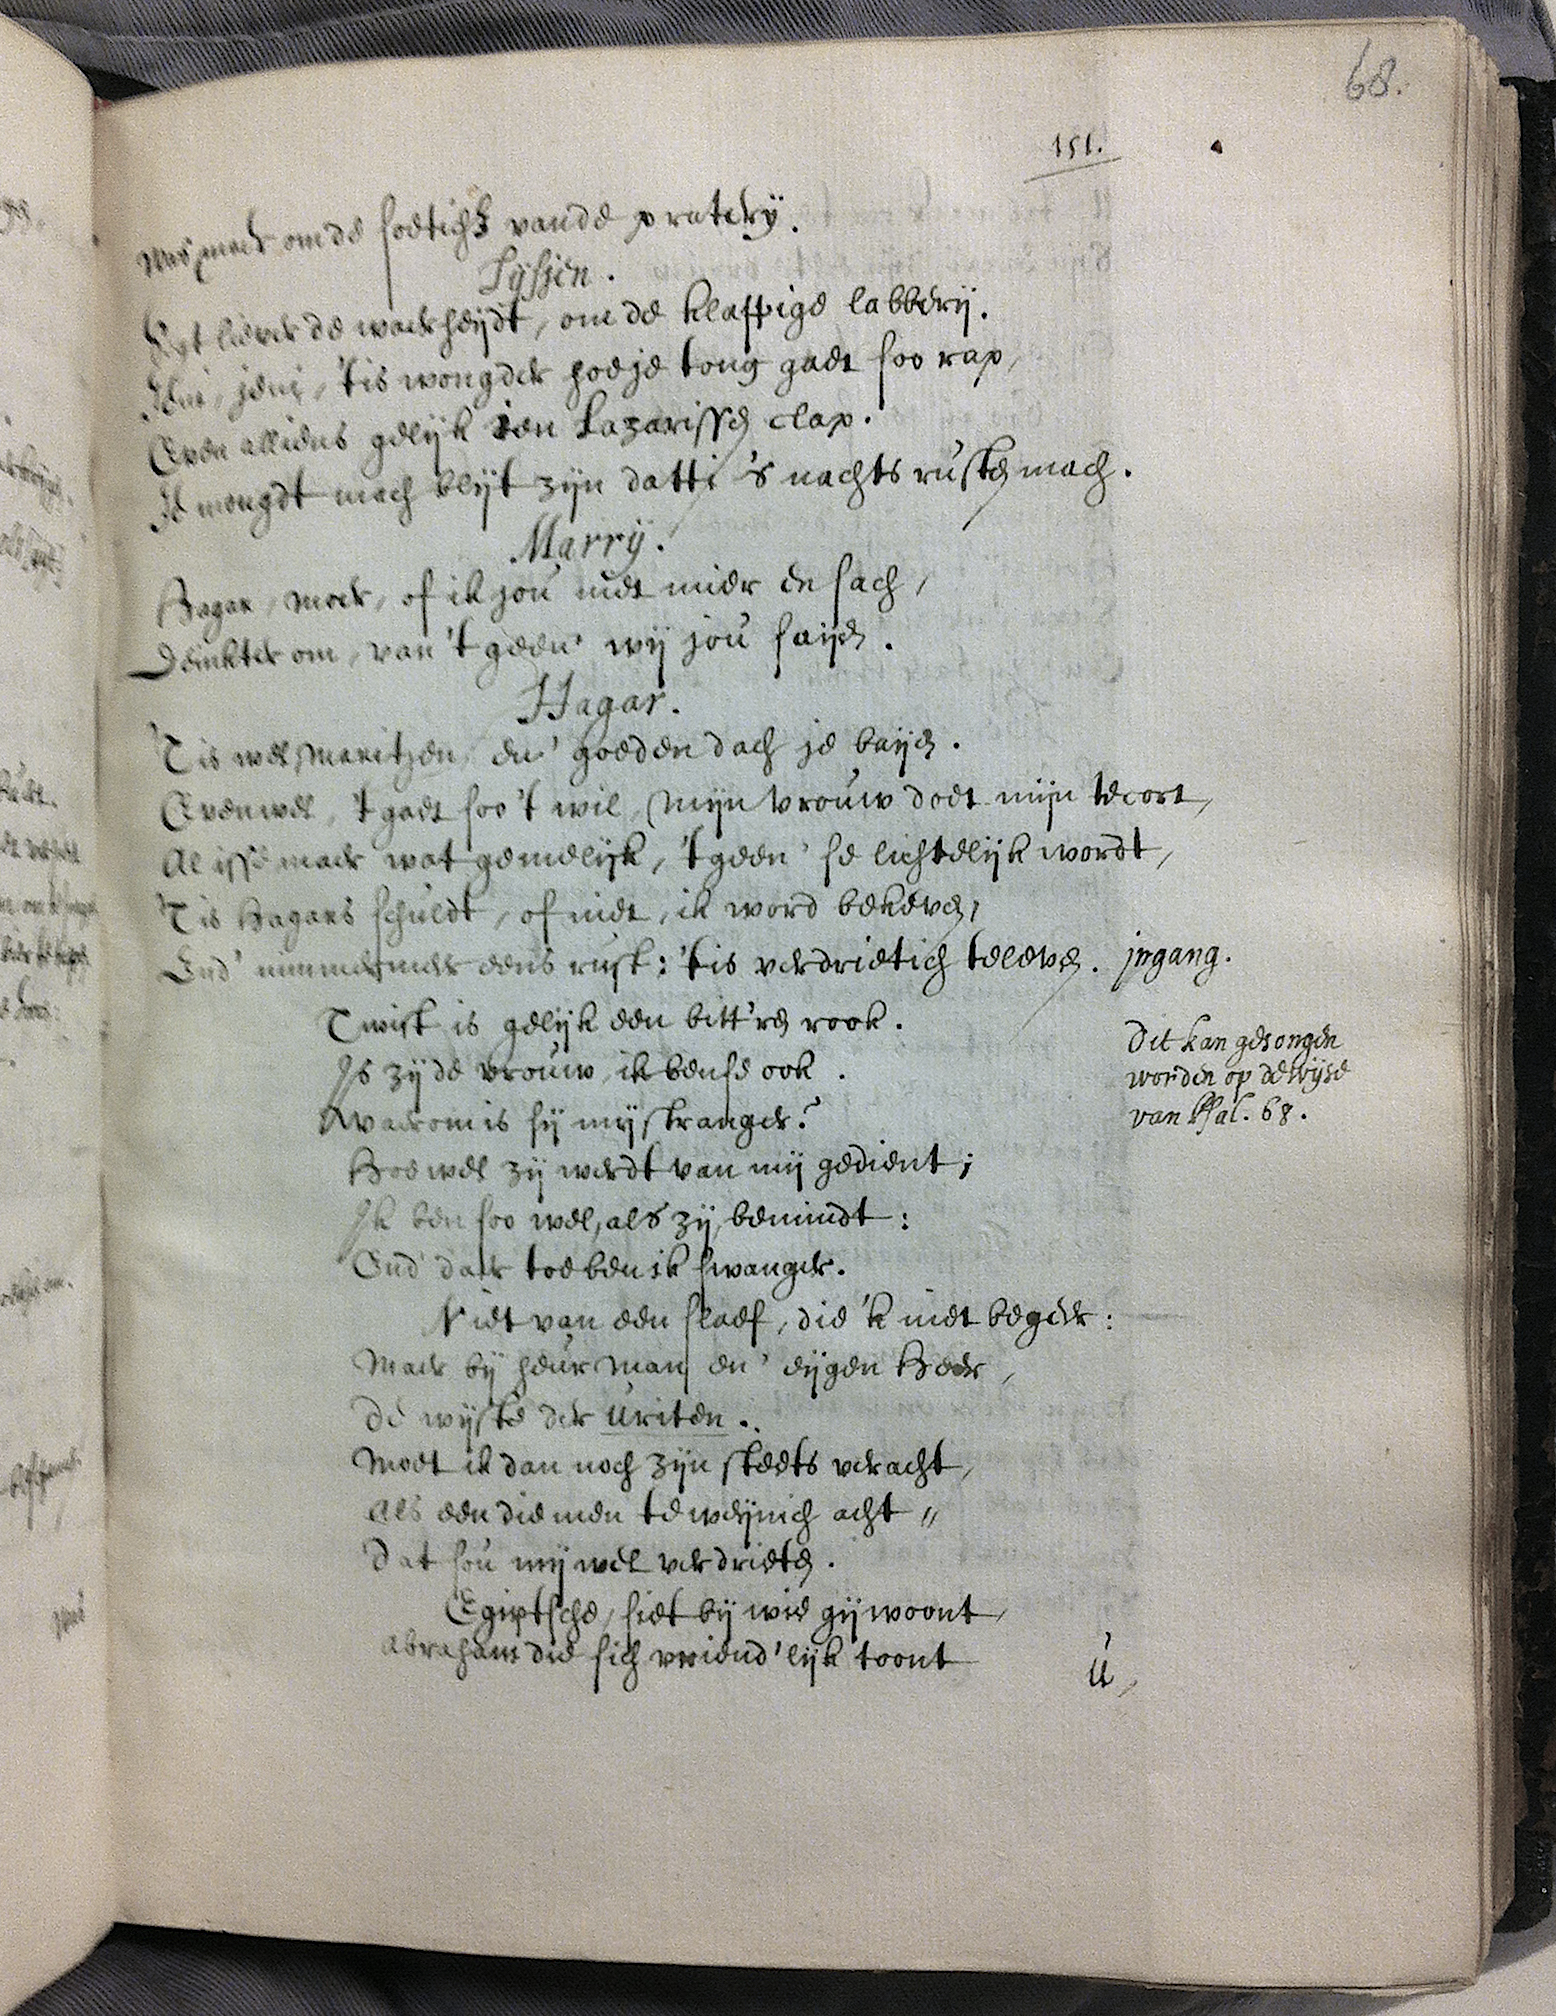 68.
151.
Was maer om de soeticht vande pratery.
Lyssen.
Segt liever de waerheydt, om de klappige labbery.
Jemi, jemi, 'tis wongder hoe je tong gaet soo rap,
Even alliens gelijk ien Lazarissen clap.
Je mongdt mach blijt zijn datti 's nachts rusten mach.
Marry.
Hagar, moer, of ik jou niet mier en sach,
Deinkter om, van 't geen' wij jou saijen.
Hagar.
'T is wel Maritjen, en' goeden dach je baijen.
Evenwel, 't gaet soo 't wil, mijn Vrouw doet mijn te cort,
Al isse maer wat gemelijk, 't geen' se lichtelijk wordt,
'T is Hagars schuldt, of niet, ik word bekeven,
End' nimmermeer eens rust: 'tis verdrietich te leven. ingang.
Twist is gelijk een bitt'ren rook.
Is zij de vrouw, ik ben se ook.
Waerom is sij mij stranger?
Hoewel zij werdt van mij gedient;
Ik ben soo wel, als zij, bemindt:
End' daer toe ben ik swanger.
Dit kan gesongen
worden op de wijse
van Psal. 68.
Niet van een slaef, die 'k niet begeer:
Maer bij heur man en' eijgen Heer,
De wijste der Uriten.
Moet ik dan noch zijn steets veracht,
Als een die men te weijnich acht,,
Dat sou mij wel verdrieten.
Egiptsche, siet bij wie gij woont,
Abraham die sich vriend'lijk toont
U,